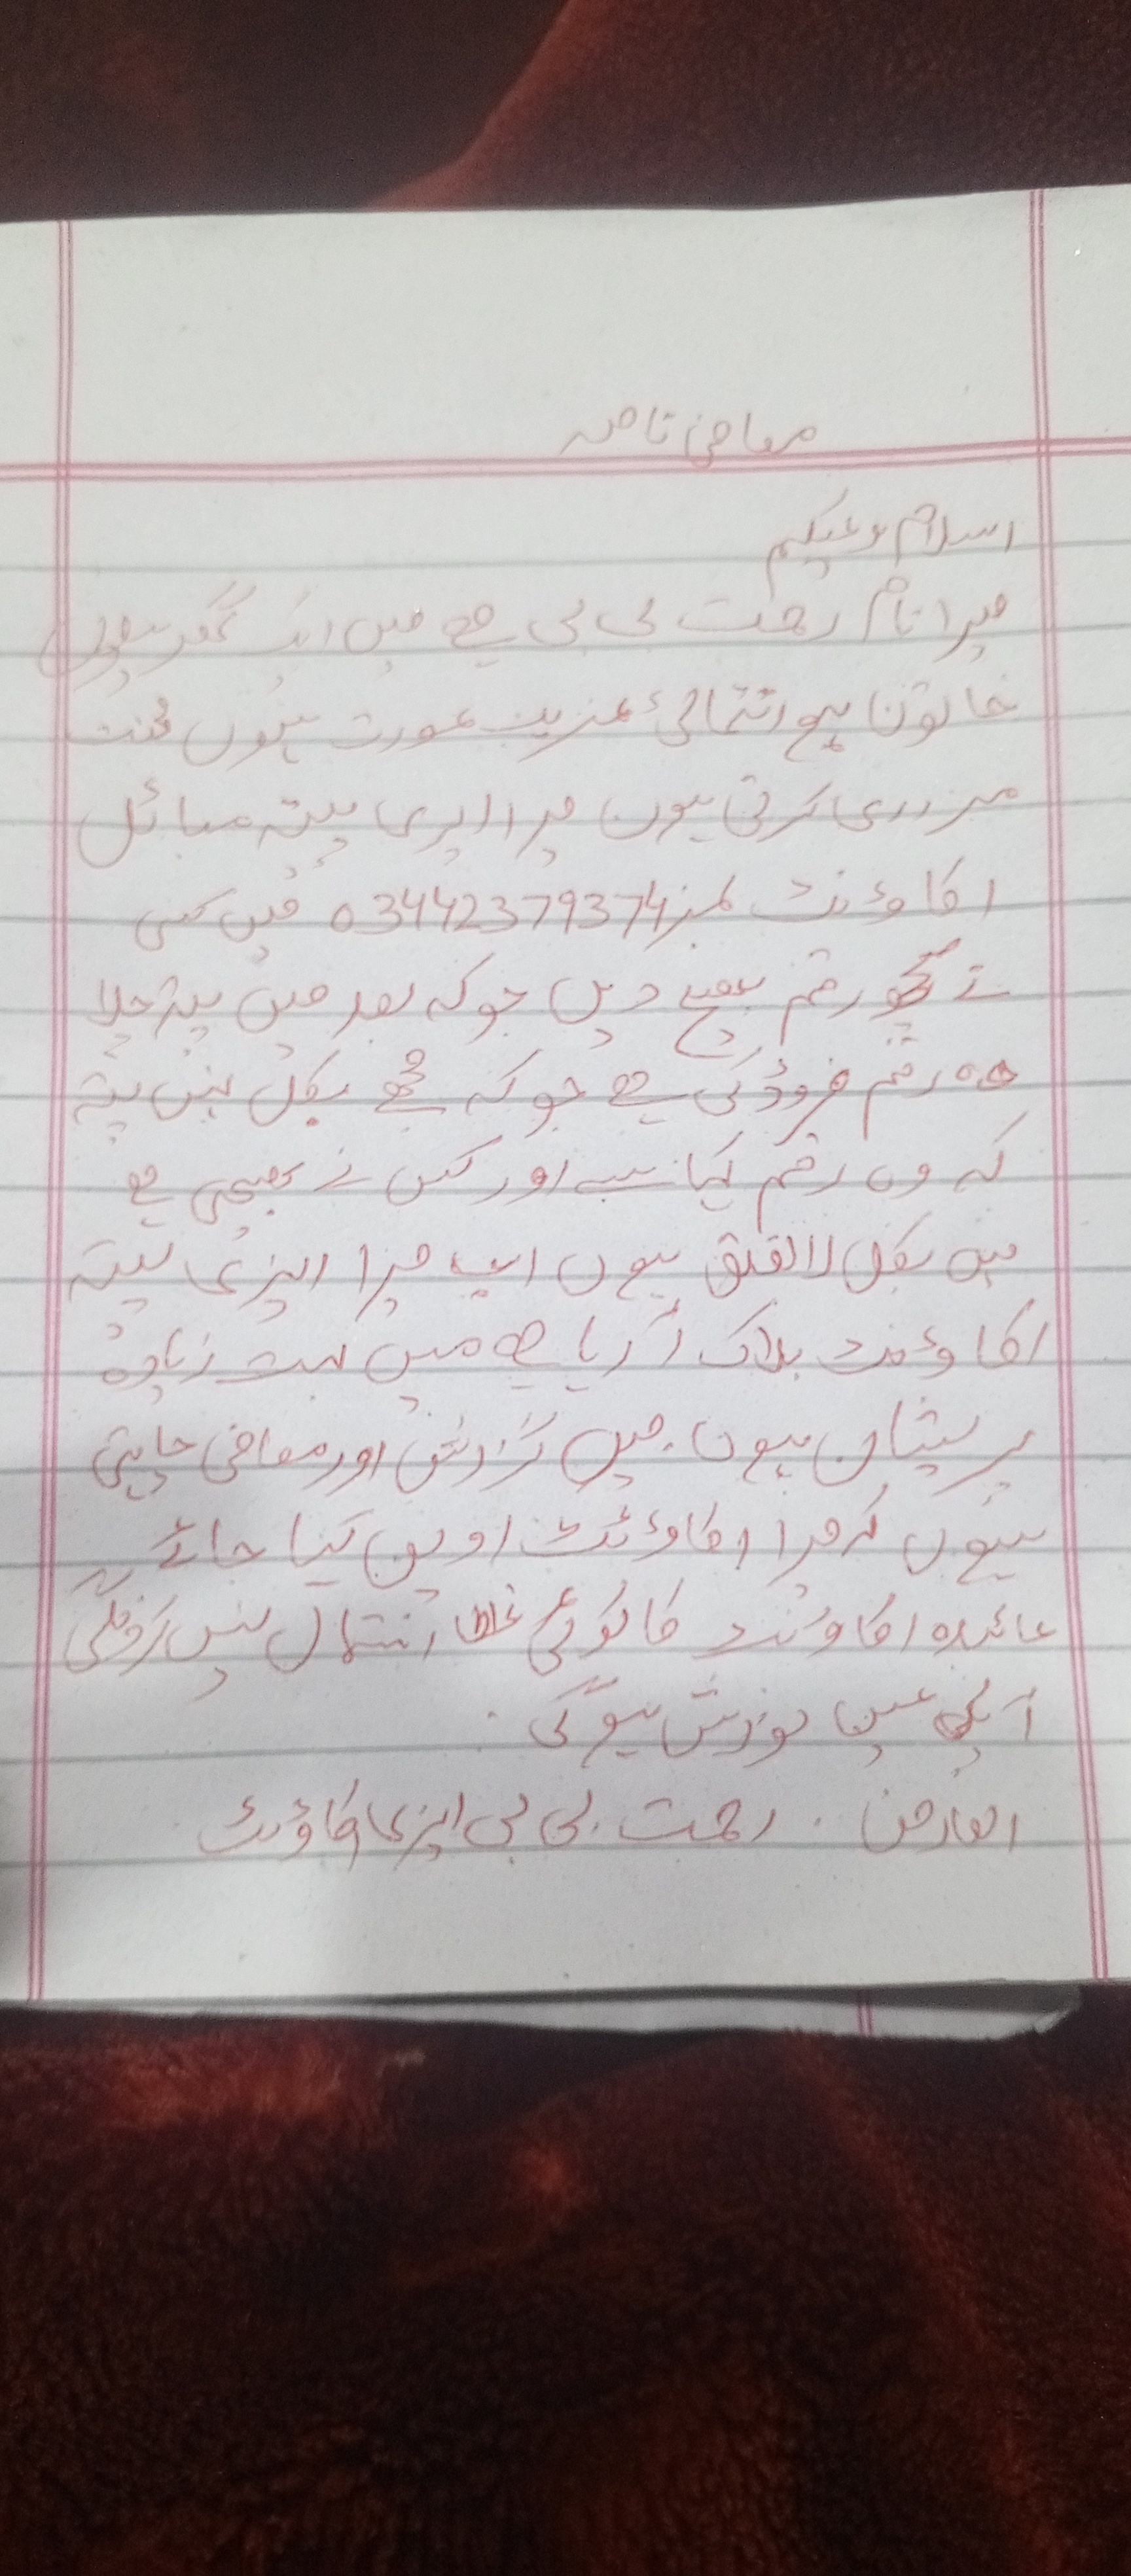 معافی نامہ
اسلام وعلیکم
میرا نام رحمت بی بی ہے میں ایک گھریلوں
خاتون ہو انتہائی غریب عورت ہوں محنت
مزدری کرتی ہوں میرا ایزی پیسہ مبائل
اکاوئنٹ نمبر 03442379374 میں کسی
نے کچھ رقم بھیج دیں جو کہ بعد میں پتہ چلا
وہ رقم فروڈ کی ہے جو کہ مجھے بکل نہیں پتہ
کہ وہ رقم کیا ہے اور کس نے بھیجی ہے
میں بکل لاتعلق ہوں اب میرا ایزی پیسہ
اکاوئنٹ بلاک آ رہا ہے میں بہت زیادہ
پریشان ہوں. میں گزارش اور معافی چاہتی
ہوں کہ میرا اکاوئنٹ اوپن کیا جائے
عائندہ اکاوئنٹ کا کوئی غلط استمال نہیں کروںگی
آپکی عین نوزش ہوگی.
العارض. رحمت بی بی ایزی اکاؤنٹ